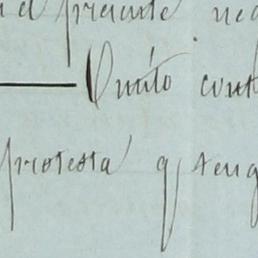 el presente ne
Omito cont
protesta q teng